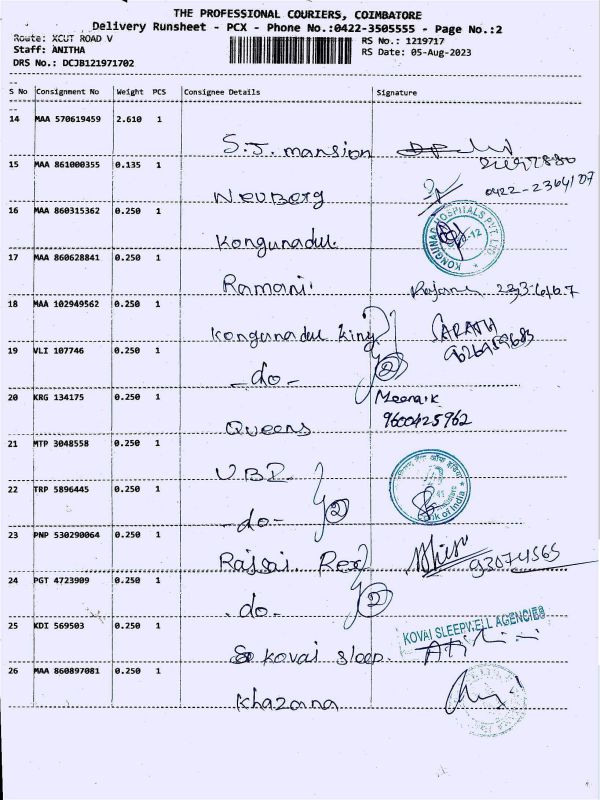 THE PROFESSIONAL COURIERS, COIMBATORE
Delivery Runsheet - PCX - Phone No.:0422-3505555 - Page No.:2
Route: XCUT ROAD V
RS No.: 1219717
Staff: ANITHA
RS Date: 05-Aug-2023
DRS No.: DCJB121971702
S No Consignment No Weight PCS Consignee Details Signature
14 MAA 570619459 2.610 1
S.J. mansion
15 MAA 861000355 0.135 1
0422-2364107
Neuberg
16 MAA 860315362 0.250 1
KONGUNAD HOSPITALS PVT. LTD
Kongunadu.
17 MAA 860628841 0.250 1
Ramani.
18 MAA 102949562 0.250 1
Kongunadu King SARATH
19 VLI 107746 0.250 1
-do- 2
20 KRG 134175 0.250 1
9600425962
Queens
21 MTP 3048558 0.250 1
UBI
22 TRP 5896445 0.250 1
Bank of India
-do- 2
23 PNP 530290064 0.250 1
Rajsai. Rex
24 PGT 4723909 0.250 1
.do. 2
25 KDI 569503 0.250 1
KOVAI SLEEPWELL AGENCIES
kovai sleep.
26 MAA 860897081 0.250 1
Khazana